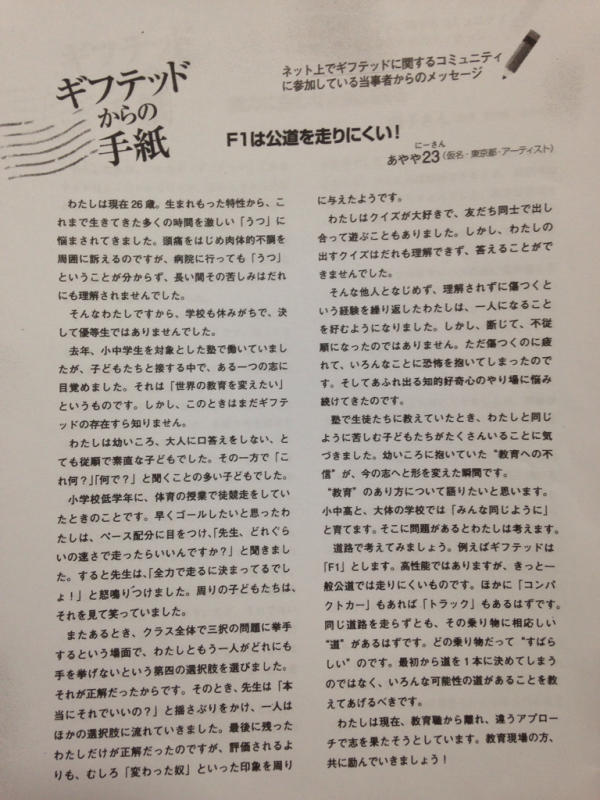 ギフテッド
からの
手紙
ネット上でギフテッドに関するコミュニティ
に参加している当事者からのメッセージ
F1は公道を走りにくい!
にーさん
あやや23(仮名・東京都・アーティスト)
わたしは現在26歳。生まれもった特性から、こ
れまで生きてきた多くの時間を激しい「うつ」に
悩まされてきました。頭痛をはじめ肉体的不調を
周囲に訴えるのですが、病院に行っても「うつ」
ということが分からず、長い間その苦しみはだれ
にも理解されませんでした。
そんなわたしですから、学校も休みがちで、決
して優等生ではありませんでした。
去年、小中学生を対象とした塾で働いていまし
たが、子どもたちと接する中で、ある一つの志に
目覚めました。それは「世界の教育を変えたい」
というものです。しかし、このときはまだギフテ
ッドの存在すら知りません。
わたしは幼いころ、大人に口答えをしない、と
ても従順で素直な子どもでした。その一方で「こ
れ何?」「何で?」と聞くことの多い子どもでした。
小学校低学年に、体育の授業で徒競走をしてい
たときのことです。早くゴールしたいと思ったわ
たしは、ペース配分に目をつけ、「先生、どれぐら
いの速さで走ったらいいんですか?」と聞きまし
た。すると先生は、「全力で走るに決まってるでし
ょ!」と怒鳴りつけました。周りの子どもたちは、
それを見て笑っていました。
またあるとき、クラス全体で三択の問題に挙手
するという場面で、わたしともう一人がどれにも
手を挙げないという第四の選択肢を選びました。
それが正解だったからです。そのとき、先生は「本
当にそれでいいの?」と揺さぶりをかけ、一人は
ほかの選択肢に流れていきました。最後に残った
わたしだけが正解だったのですが、評価されるよ
りも、むしろ「変わった奴」といった印象を周り
に与えたようです。
わたしはクイズが大好きで、友だち同士で出し
合って遊ぶこともありました。しかし、わたしの
出すクイズはだれも理解できず、答えることがで
きませんでした。
そんな他人となじめず、理解されずに傷つくと
いう経験を繰り返したわたしは、一人になること
を好むようになりました。しかし、断じて、不従
順になったのではありません。ただ傷つくのに疲
れて、いろんなことに恐怖を抱いてしまったので
す。そしてあふれ出る知的好奇心のやり場に悩み
続けてきたのです。
塾で生徒たちに教えていたとき、わたしと同じ
ように苦しむ子どもたちがたくさんいることに気
づきました。幼いころに抱いていた“教育への不
信”が、今の志へと形を変えた瞬間です。
“教育”のあり方について語りたいと思います。
小中高と、大体の学校では「みんな同じように」
と育てます。そこに問題があるとわたしは考えます。
道路で考えてみましょう。例えばギフテッドは
「F1」とします。高性能ではありますが、きっと一
般公道では走りにくいものです。ほかに「コンパ
クトカー」もあれば「トラック」もあるはずです。
同じ道路を走らずとも、その乗り物に相応しい
“道”があるはずです。どの乗り物だって“すばら
しい”のです。最初から道を1本に決めてしまう
のではなく、いろんな可能性の道があることを教
えてあげるべきです。
わたしは現在、教育職から離れ、違うアプロー
チで志を果たそうとしています。教育現場の方、
共に励んでいきましょう!